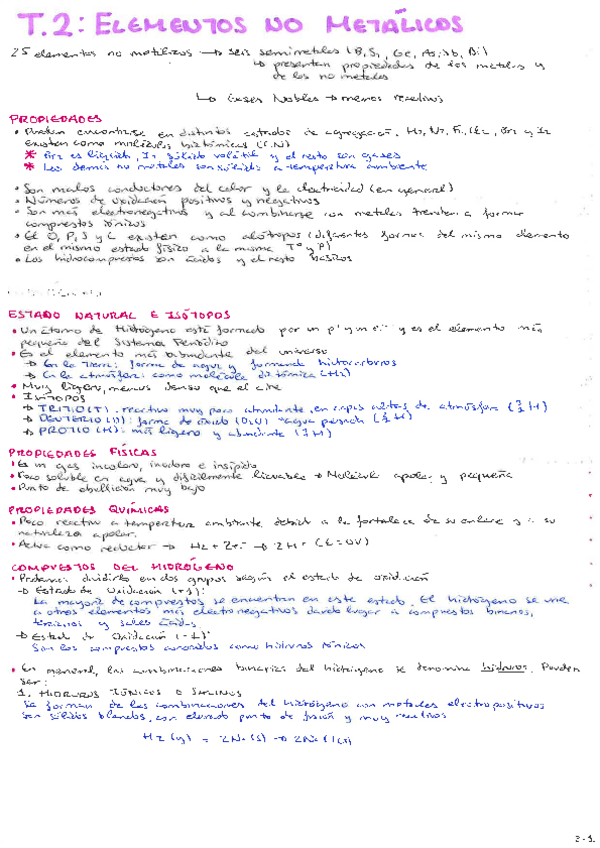 T.2: ELEMENTOS NO METÁLICOS
25 elementos no metálicos → seis semimetales (B, Si, Ge, As, Sb, Bi)
↳ presentan propiedades de los metales y
de los no metales
↳ Gases Nobles → menos reactivos
PROPIEDADES
• Pueden encontrarse en distintos estados de agregación. H2, N2, F2, Cl2, Br2 y I2
existen como moléculas diatómicas
* Br2 es líquido, I2 sólido volátil y el resto son gases
* Los demás no metales son sólidos a temperatura ambiente
• Son malos conductores del calor y la electricidad (en general)
• Números de oxidación positivos y negativos
• Son más electronegativos y al combinarse con metales tienden a formar
compuestos iónicos
• El O, P, S y C existen como alótropos (diferentes formas del mismo elemento
en el mismo estado físico a la misma Tª y P)
• Los hidrocompuestos son ácidos y el resto básicos
ESTADO NATURAL E ISÓTOPOS
• Un átomo de Hidrógeno está formado por un p⁺ y un e⁻ y es el elemento más
pequeño del Sistema Periódico
• Es el elemento más abundante del universo
→ En la Tierra: forma de agua y formando hidrocarburos
→ En la atmósfera: como molécula diatómica (H2)
• Muy ligero, menos denso que el aire
• ISÓTOPOS
→ TRITIO (T): reactivo muy poco abundante, en capas altas de atmósfera (³₁H)
→ DEUTERIO (D): forma de óxido (D2O) "agua pesada" (²₁H)
→ PROTIO (H): más ligero y abundante (¹₁H)
PROPIEDADES FÍSICAS
• Es un gas incoloro, inodoro e insípido
• Poco soluble en agua y difícilmente licuable → Molécula apolar y pequeña
• Punto de ebullición muy bajo
PROPIEDADES QUÍMICAS
• Poco reactivo a temperatura ambiente debido a la fortaleza de su enlace y a su
naturaleza apolar.
• Actúa como reductor → H2 + 2e⁻ → 2H⁺ (E = 0V)
COMPUESTOS DEL HIDRÓGENO
• Podemos dividirlo en dos grupos según el estado de oxidación
→ Estado de Oxidación (+1):
La mayoría de compuestos se encuentran en este estado. El hidrógeno se une
a otros elementos más electronegativos dando lugar a compuestos binarios,
ternarios y sales ácidas.
→ Estado de Oxidación (-1):
Son los compuestos conocidos como hidruros iónicos
• En general, las combinaciones binarias del hidrógeno se denomina hidruros. Pueden
ser:
1. HIDRUROS IÓNICOS O SALINOS
Se forman de las combinaciones del hidrógeno con metales electropositivos
Son sólidos blancos, con elevado punto de fusión y muy reactivos
H2 (g) + 2Na (s) → 2NaH (s)
2-1.